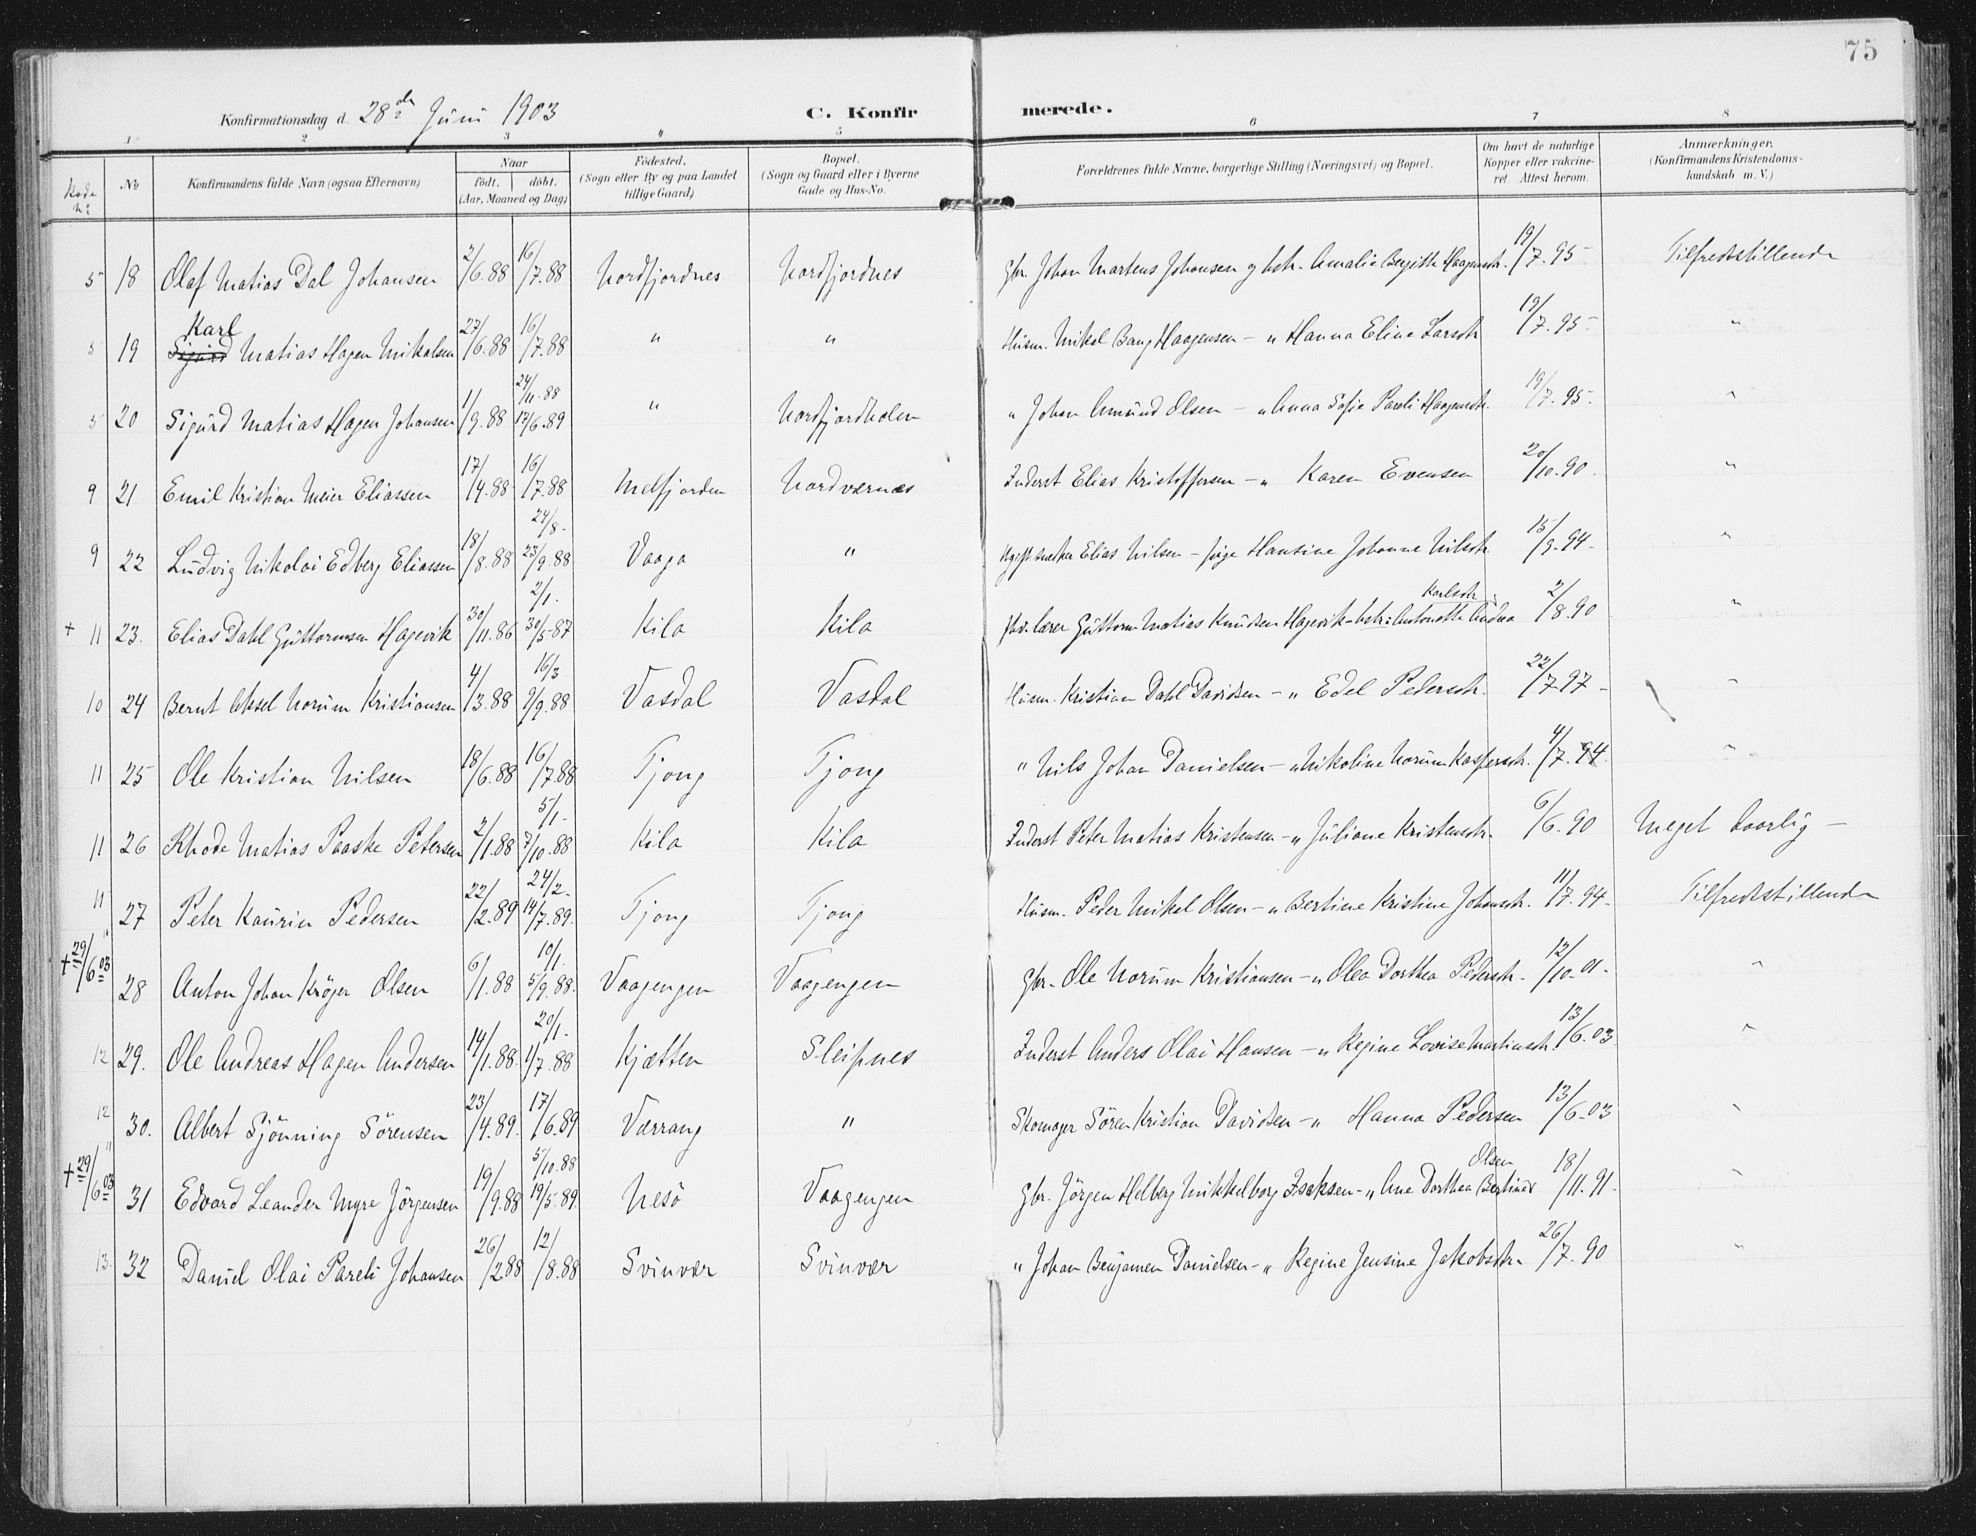 75
Konfirmationsdag d. 28de Juni 1903
C. Konfirmerede.
1 2 3 4 5 6 7 8
Kode Nr
No
Konfirmandens fulde Navn (ogsaa Efternavn)
Naar
født. døbt.
(Aar, Maaned og Dag)
Födested.
(Sogn eller By og paa Landet tillige Gaard)
Bopæl.
(Sogn og Gaard eller i Byerne Gade og Hus-No.
Forældrenes fulde Navne, borgerlige Stilling (Næringsvei) og Bopæl.
Om havt de naturlige Kopper eller vakcineret. Attest herom.
Anmærkninger.
(Konfirmandens Kristendomskundskab m. V.)
5 18 Olaf Matias Dal Johansen 2/6.88 16/7.88 Nordfjordnes Nordfjordnes Gbr. Johan Martens Johansen og hstr. Amalie Bergitte Haagensdtr. 19/7.95 Tilfredsstillende
5 19 Karl Sigurd Matias Hagen Mikalsen 27/6.88 16/7.88 " " Husm. Mikal Bang Haagensen - " Hanna Eline Larsdtr 19/7.95 "
5 20 Sigurd Matias Hagen Johansen 1/9.88 24/11.88 17/6.89 " Nordfjordholm " Johan Amund Olsen - " Anna Sofie Pareli Haagensdtr. 19/7.95 "
9 21 Emil Kristian Meier Eliassen 17/4.88 16/7.88 Melfjorden Nordværnes Inderst Elias Kristoffersen - " Karen Evensen 20/10.90. "
9 22 Ludvig Nikolai Edberg Eliassen 18/8.88 24/8. 23/9.88 Vaaga " Ugift snedker Elias Nilsen - pige Hansine Johanne Nilsdtr 15/9.94. "
+ 11 23. Elias Dahl Guttormsen Hagevik 30/11.86 2/1. 30/5.87 Kila Kila lærer Guttorm Matias Knudsen Hagevik - hstr: Antonette Karlsdtr 2/8.90 "
10 24 Bernt Aksel Norum Kristiansen 4/3.88 16/3 9/9.88 Vasdal Vasdal Husm. Kristian Dahl Davidsen - " Edel Pedersdtr. 22/7 97 - "
11 25 Ole Kristian Nilsen 18/6.88 16/7.88 Tjong Tjong " Nils Johan Danielsen - " Nikoline Norum Kaspersdtr. 4/7.94 "
11 26 Rhode Matias Paaske Petersen 2/1.88 5/1. 7/10.88 Kila Kila Inderst Peter Matias Kristensen - " Juliane Kristensdtr. 6/6.90 Meget daarlig -
11 27 Peter Kaurin Pedersen 22/2.89 24/2. 14/7.89. Tjong Tjong Husm. Peder Mikal Olsen - " Bertine Kristine Johansdtr. 11/7.94. Tilfredsstillende
11 + 29/6 03 28 Anton Johan Krøger Olsen 6/1.88 10/1. 5/9.88. Vaagengen Vaagengen Gbr. Ole Norum Kristiansen - " Olea Dorthea Pedersdtr. 12/10.01. "
12 29. Ole Andreas Hagen Andersen 14/1.88. 20/1. 1/7.88 Kjætten Sleipnes Inderst Anders Olai Hansen - " Regine Lovise Martinsdtr. 13/6.03 "
12 30. Albert Sjønning Sörensen 23/4.89. 17/6.89 Værrang " Skomager Sören Kristian Davidsen - " Hanna Pedersen 13/6.03 "
11 + 29/6 03 31 Edvard Leander Myre Jörgensen 19/9.88 5/10.88 19/5.89. Nesö Vaagengen Gbr. Jörgen Helberg Mikkelborg Isaksen - " Ane Dorthea Bertine Olsen 18/11.91. "
13. 32 Daniel Olai Pareli Johansen 26/2.88 12/8.88 Svinvær Svinvær " Johan Benjamen Danielsen - " Regine Jensine Jakobsdtr. 26/7.90 "